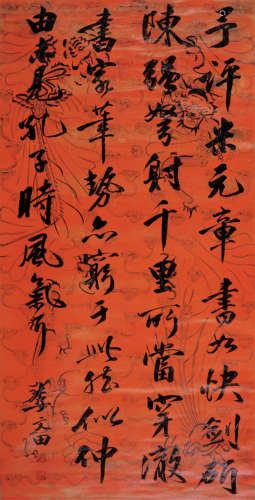 予评米元章書如快劍斫
陳强弩射千里所當穿澈
書家筆勢亦窮于此然似仲
由未見孔子時風氣耳
龔文田